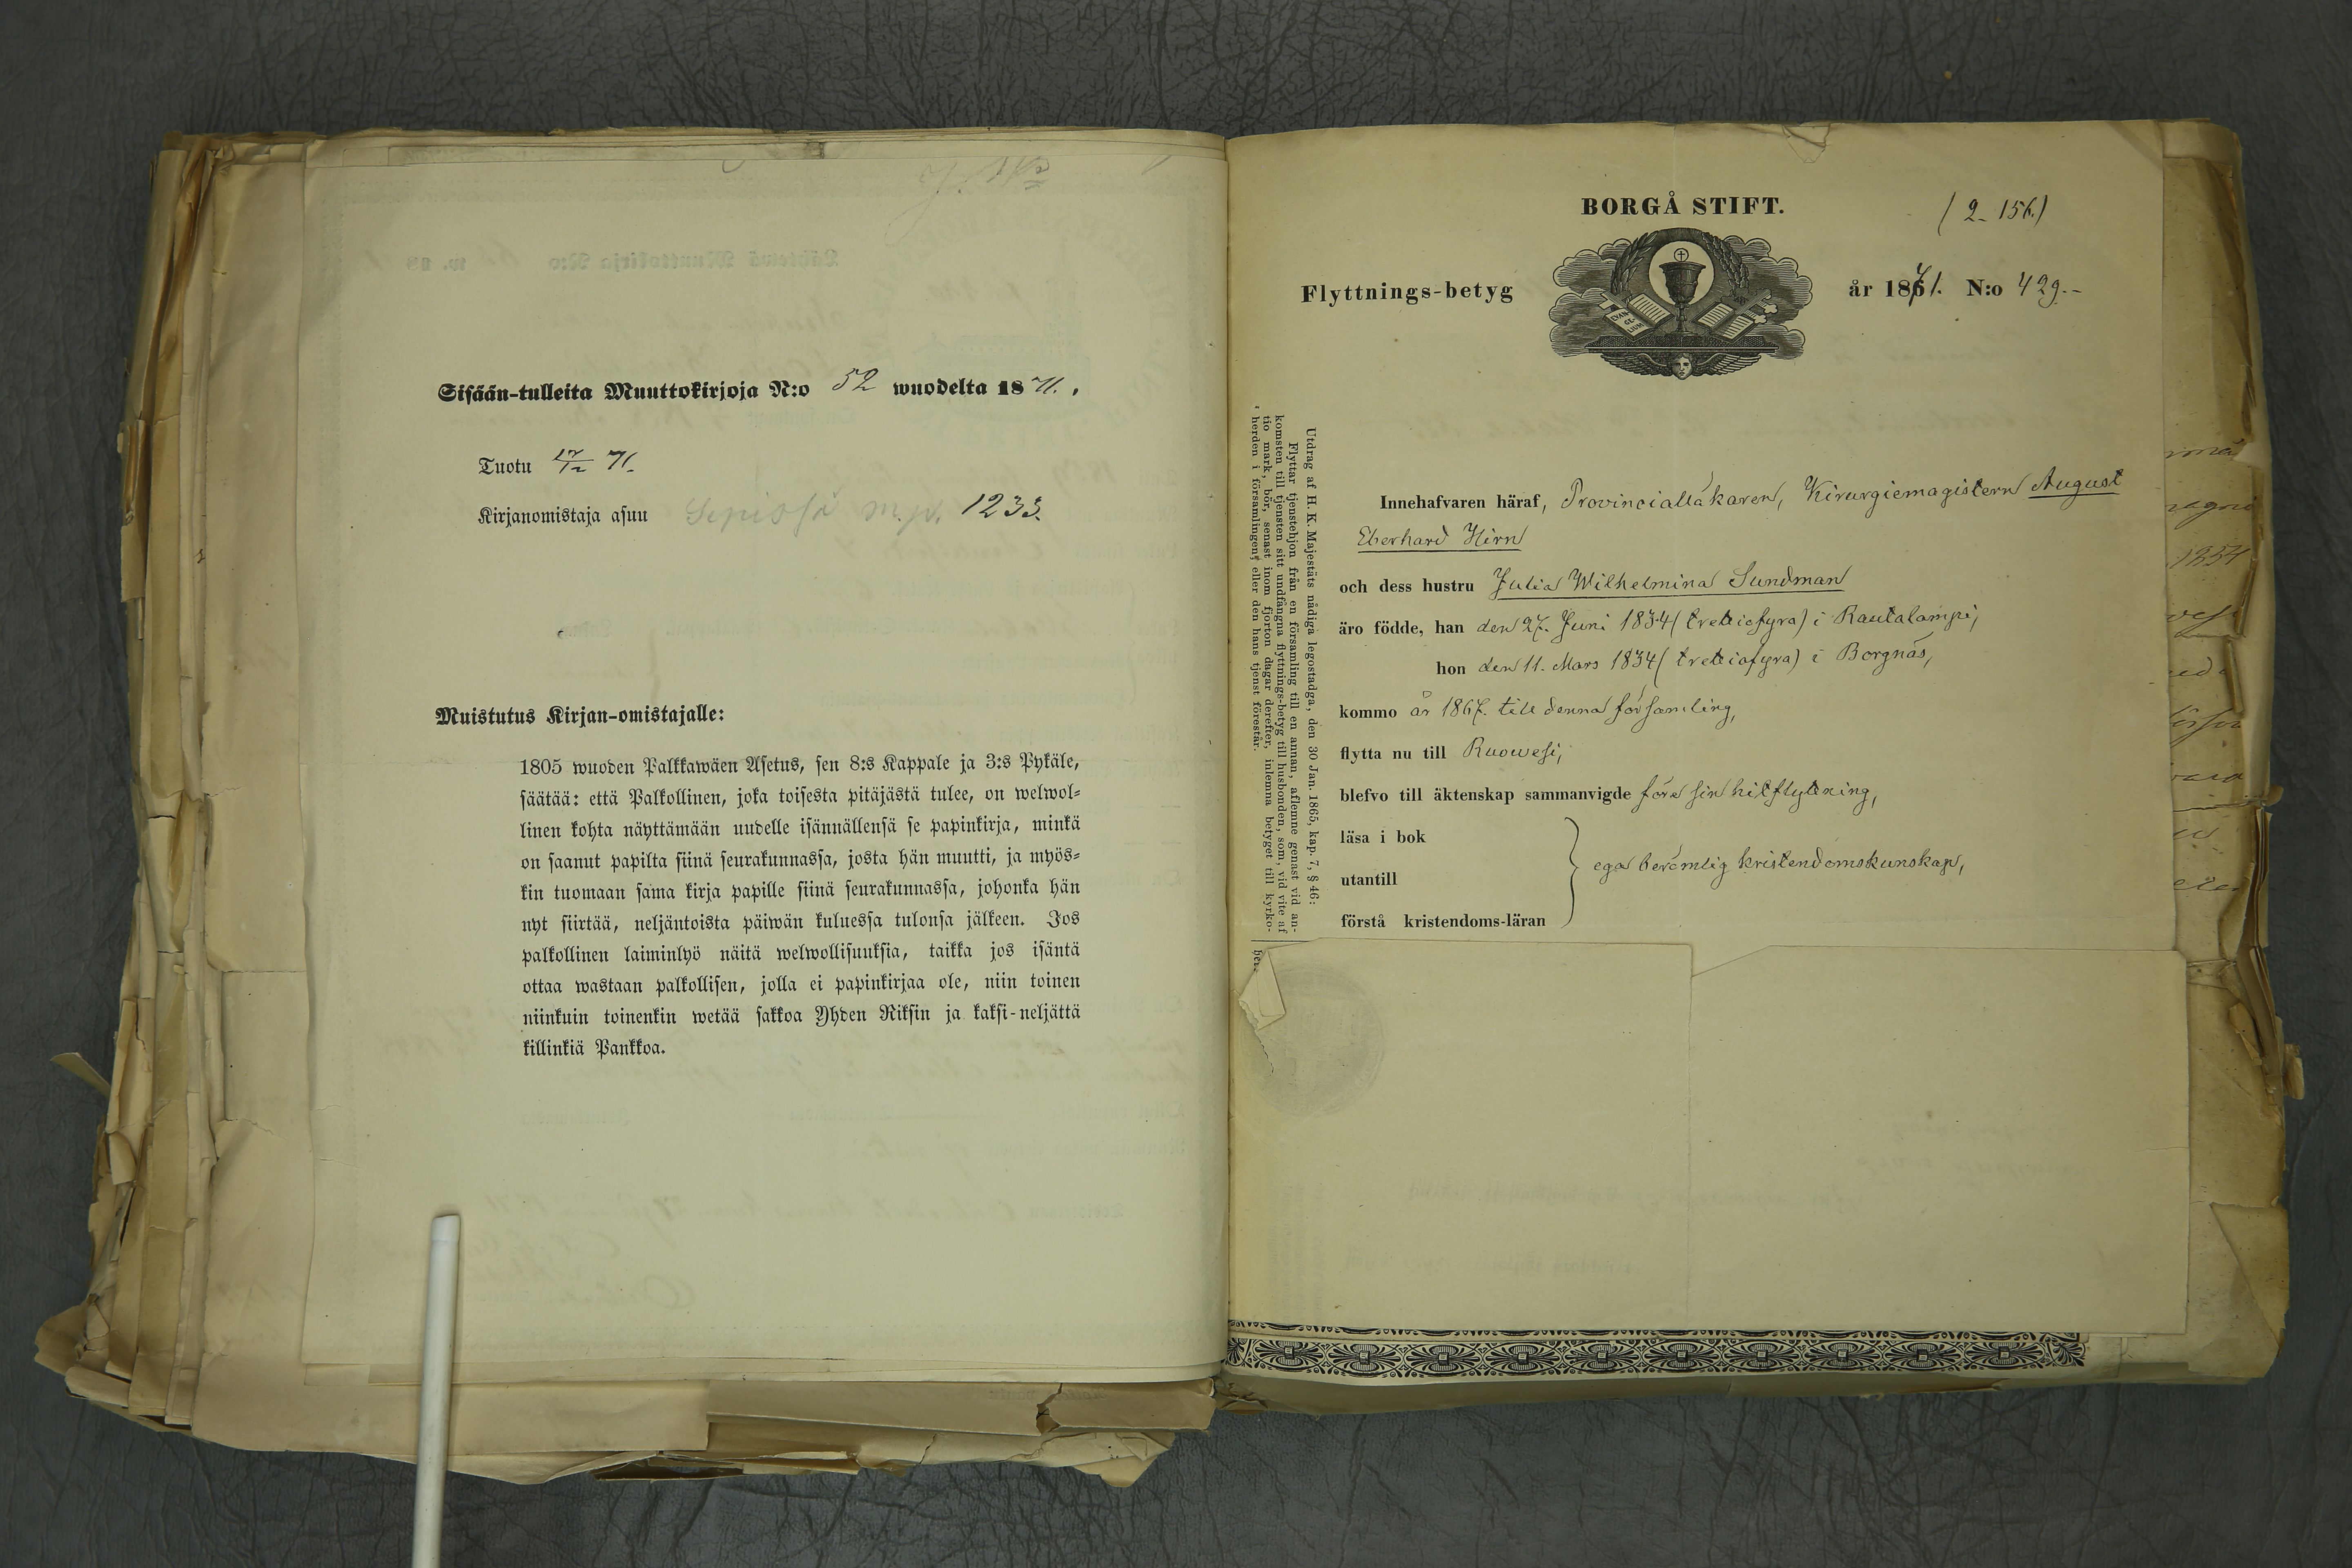 Sisään-tulleita Muuttokirjoja N:o 52 wuodelta 1871.
Tuotu 17/12 71.
Kirjanomistaja asuu 1233.
Muistutus Kirjan-omistajalle:
1805 wuoden Palkkawäen Asetus, sen 8:s Kappale ja 3:s Pykäle,
säätää: että Palkollinen, joka toisesta pitäjästä tulee, on welwol-
linen kohta näyttämään uudelle isännällensä se papinkirja, minkä
on saanut papilta siinä seurakunnassa, josta hän muutti, ja myös-
kin tuomaan sama kirja papille siinä seurakunnassa, johonka hän
nyt siirtää, neljäntoista päiwän kuluessa tulonsa jälkeen. Jos
palkollinen laiminlyö näitä welwollisuuksia, taikka jos isäntä
ottaa wastaan palkollisen, jolla ei papinkirjaa ole, niin toinen
niinkuin toinenkin wetää sakkoa Yhden Riksin ja kaksi-neljättä
killinkiä Pankkoa.
BORGÅ STIFT.
(2-156.)
Flyttnings-betyg år 1871. N:o 429.-
EVAN-
GE-
LIUM
Utdrag af H. K. Majestäts nådiga legostadga, den 30 Jan. 1865, kap. 7, § 46:
Flyttar tjenstehjon från en församling till en annan, aflemne genast vid an-
komsten till tjensten sitt undfångna flyttnings-betyg till husbonden, som, vid vite af
tio mark, bör, senast inom fjorton dagar derefter, inlemna betyget till kyrko-
herden i församlingen, eller den hans tjenst förestår.
Innehafvaren häraf, Provincialläkaren, Kirurgiemagistern August
Eberhard Hirn
och dess hustru Julia Wilhelmina Sundman
äro födde, han den 27. Juni 1834 (trettiofyra) i Rautalampi,
hon den 11. Mars 1834 (trettiofyra) i Borgnäs,
kommo år 1867. till denna församling,
flytta nu till Ruowesi,
blefvo till äktenskap sammanvigde före sin hitflyttning,
läsa i bok
utantill
förstå kristendoms-läran
ega berömlig kristendomskunskap,